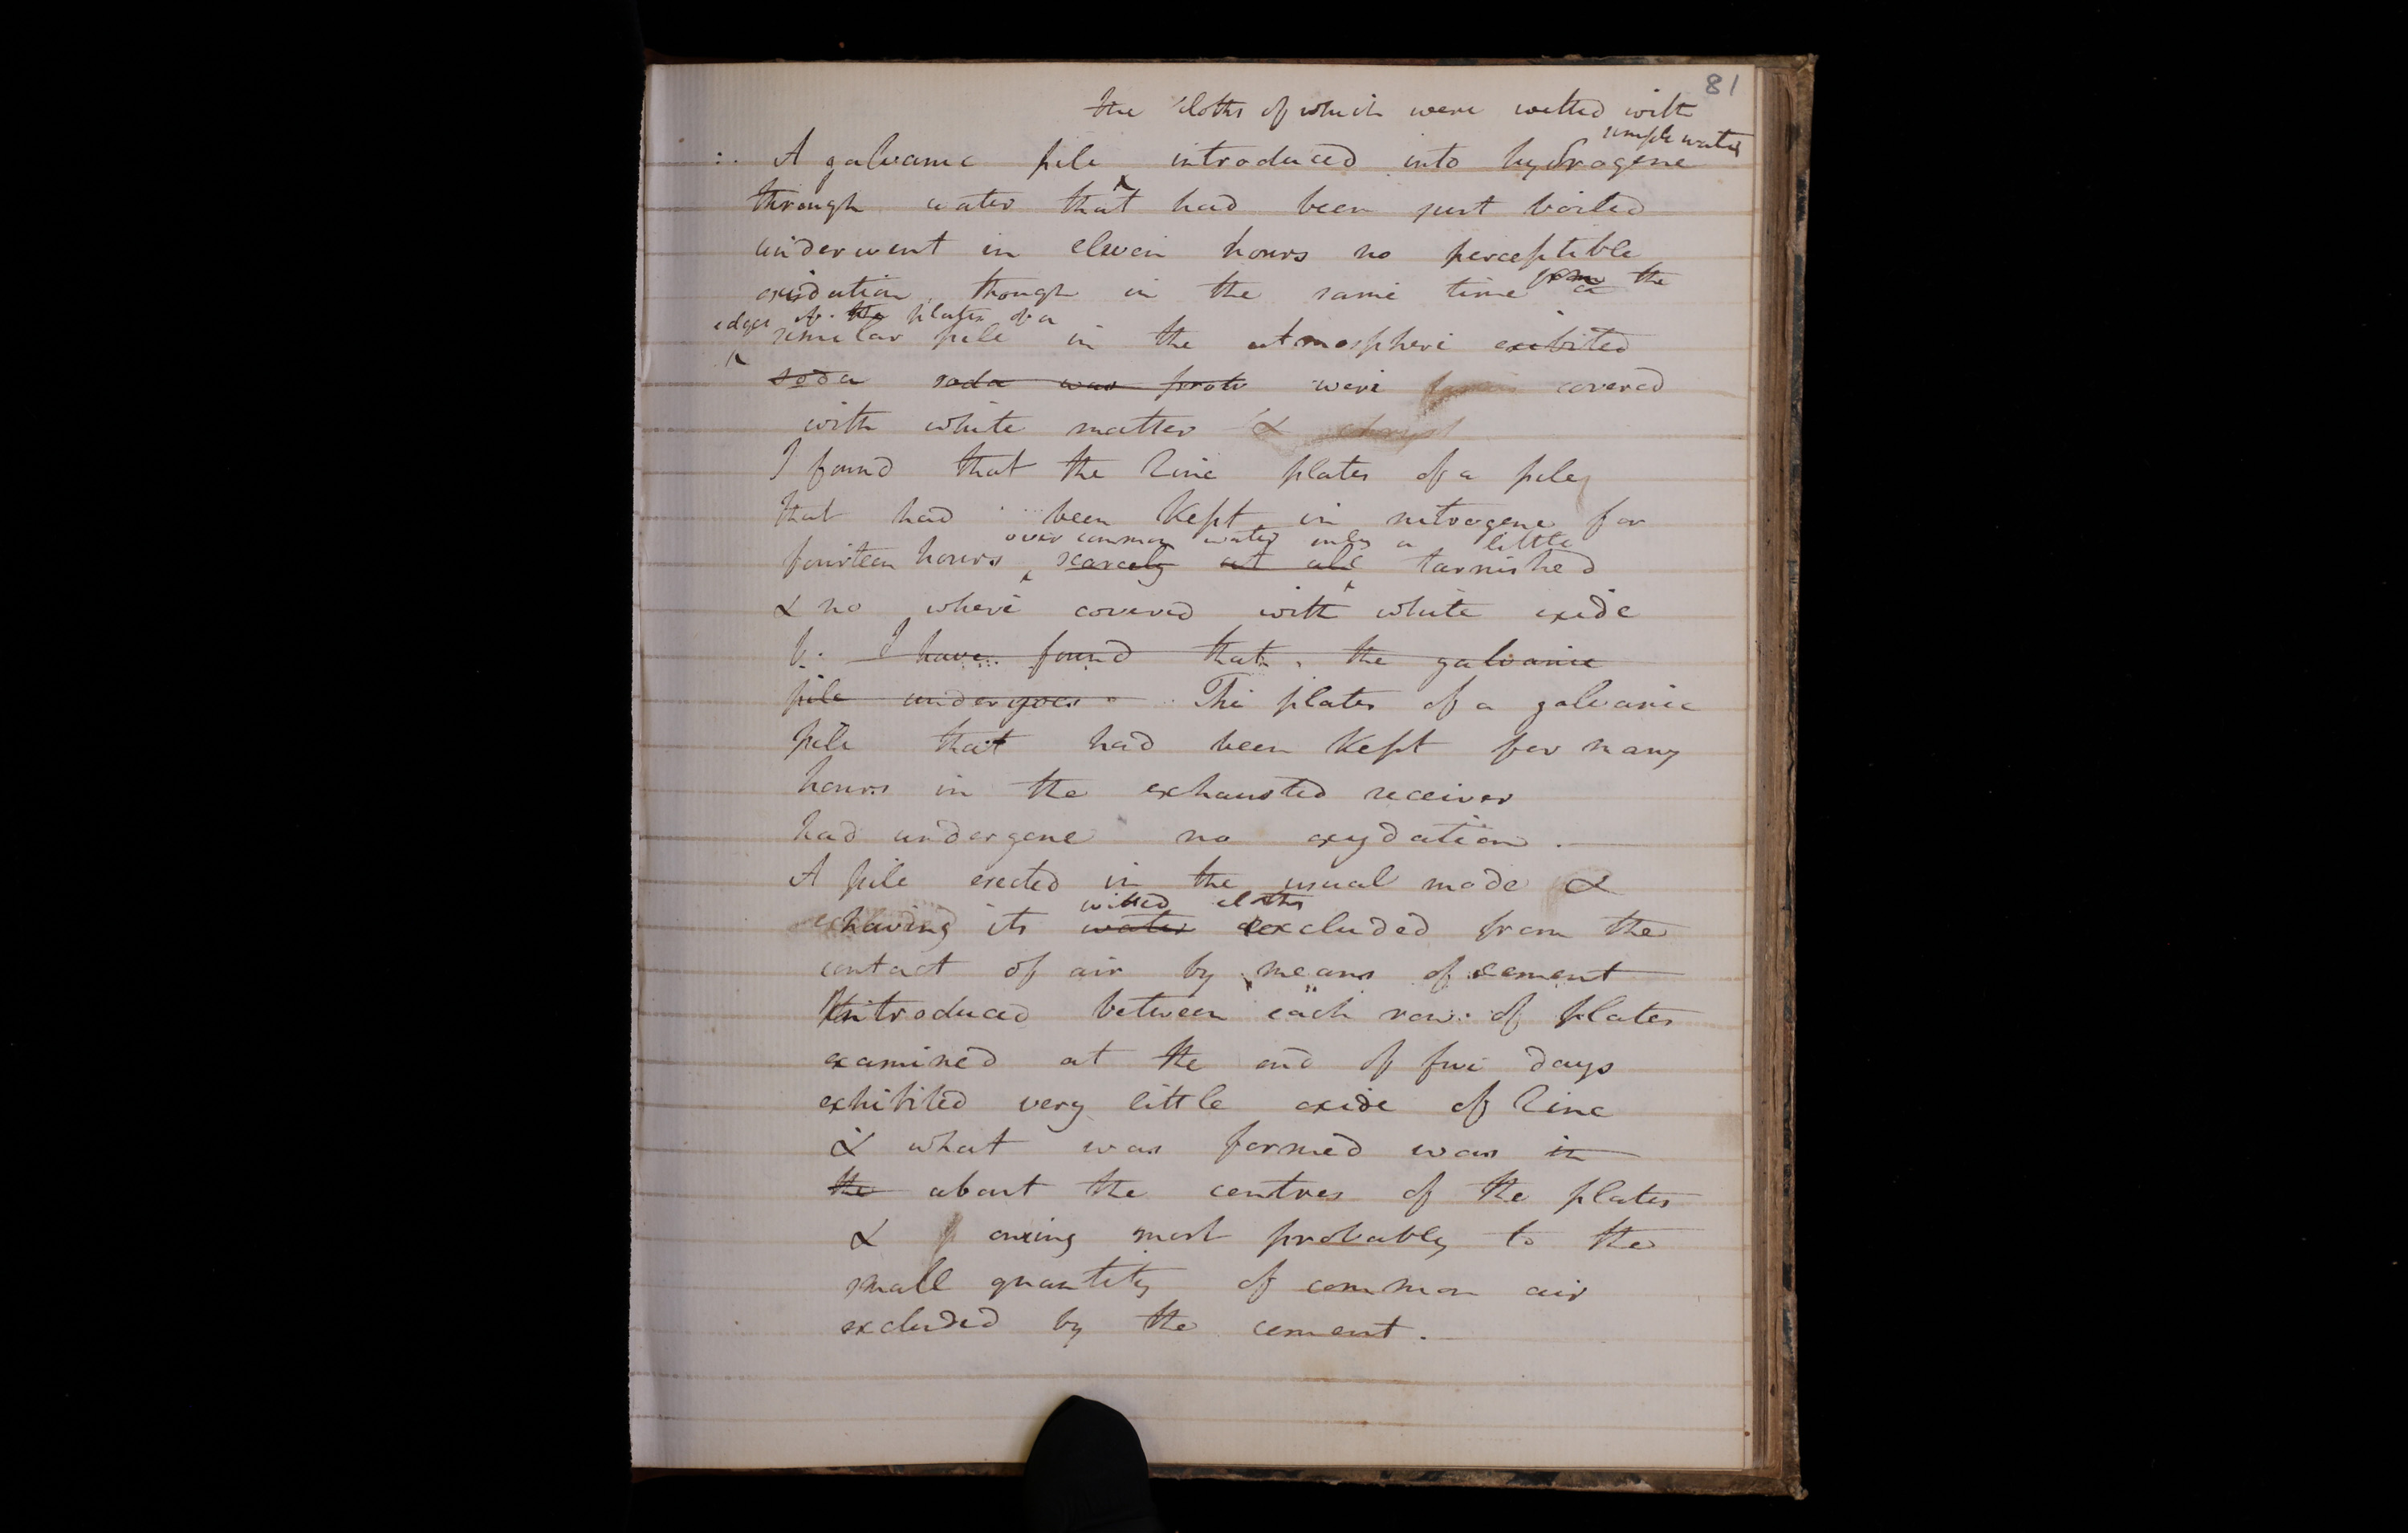 81
the cloths of which were wetted with
simple water
A galvanic pile introduced into hydrogene
through water that had been just boiled
underwent in eleven hours no perceptible
oxidation, though in the same time from a the
edges of the plates of a
similar pile in the atmosphere exibited
soda soda was were covered
with white matter &
I found that the zinc plates of a pile
that had been kept in nitrogene for
over common water only a little
fourteen hours scarcely at all tarnished
& no where covered with white oxide
I have found that the galvanic
pile undergoes The plates of a galvanic
pile that had been kept for many
hours in the exhausted receiver
had undergone no oxydation.
A pile erected in the usual mode &
wetted cloths
having its water excluded from the
contact of air by means of cement
introduced between each row of plates
examined at the end of five days
exhibited very little oxide of zinc
& what was formed was in
the about the centres of the plates
& owing most probably to the
small quantity of common air
excluded by the cement.